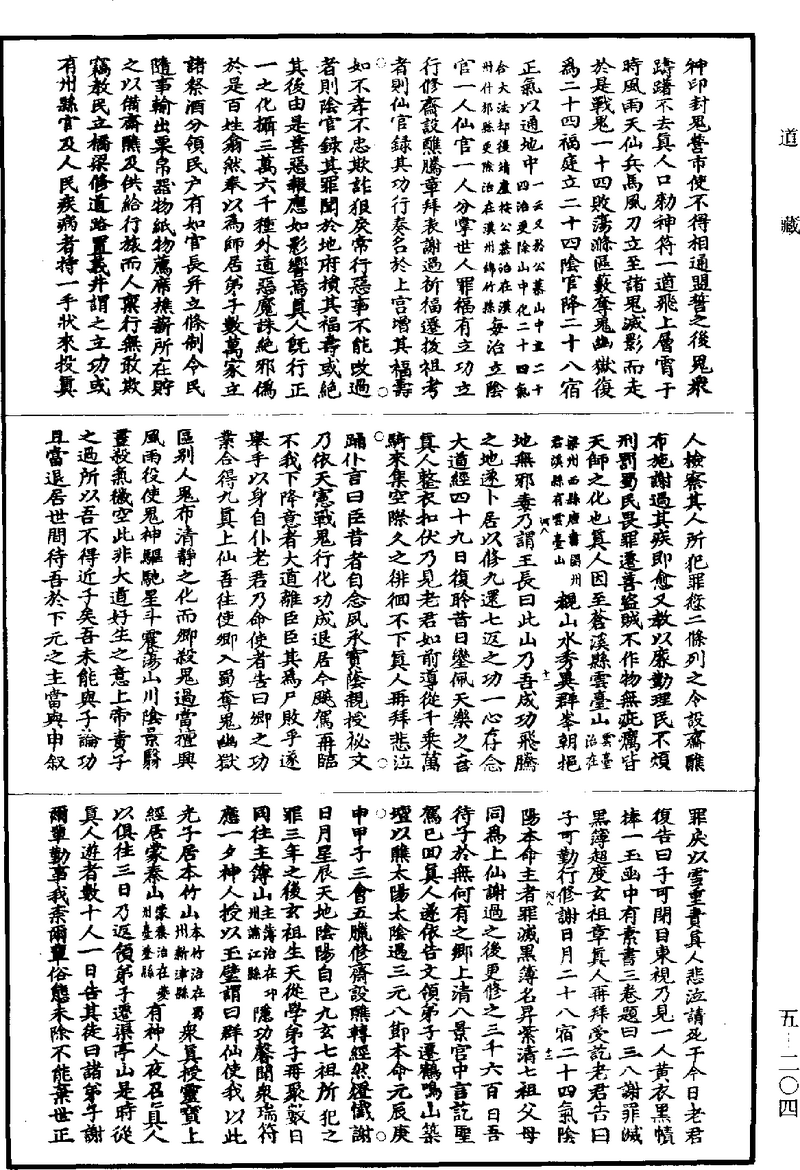 道藏
五-二〇四
神印封鬼營市使不得相通盟誓之後鬼衆
躊躇不去真人口勑神符一道飛上層霄于
時風雨天仙兵馬風刀立至諸鬼滅影而走
於是戰鬼一十四敗蕩滌區藪奪鬼幽獄復
為二十四福庭立二十四陰官降二十八宿
正氣以通地中一云又於公慕山中立二十四治更除山中化二十四氣合大法却復靖廬按公慕治在漢州什邡縣更除治在漢州綿竹縣每治立陰
官一人仙官一人分掌世人罪福有立功立
行修齋設醮騰章拜表謝過祈福遷拔祖考
者則仙官録其功行奏名於上宫增其福壽
如不孝不忠欺詐狠戾常行惡事不能改過
者則陰官録其罪聞於地府損其福壽或絶
其後由是善惡報應如影響焉真人既行正
一之化攝三萬六千種外道惡魔誅絶邪僞
於是百姓翕然奉以為師居弟子數萬家立
諸祭酒分領民户有如官長并立條制令民
隨事輸出粟帛器物紙物薦席樵薪所在貯
之以備齋醮及供給行旅而人稟行無敢欺
竊教民立橋梁修道路置義井謂之立功或
有州縣官及人民疾病者持一手狀來投真
人檢察其人所犯罪愆二條列之令設齋醮
布施謝過其疾即愈又教以廉勤理民不煩
刑罰蜀民畏罪遷善盜賊不作物無疵癘皆
天師之化也真人因至蒼溪縣雲臺山雲臺治在梁州西縣唐書閬州蒼溪縣有雲臺山觀山水秀異群峯朝挹
地無邪毒乃謂王長曰此山乃吾成功飛騰
之地遂卜居以修九還七返之功一心存念
大道經四十九日復聆昔日鑾佩天樂之音
真人整衣扣伏乃見老君如前導從千乘萬
騎來集空際久之徘徊不下真人再拜悲泣
踊仆言曰臣昔者自念夙承寶蔭親授祕文
乃依天憲戰鬼行化功成退居今飈駕再臨
不我下降意者大道離臣臣其為尸敗乎遂
舉手以身自仆老君乃命使者告曰卿之功
業合得九真上仙吾往使卿入蜀奪鬼幽獄
區别人鬼布清靜之化而卿殺鬼過當擅興
風雨役使鬼神驅馳星斗震蕩山川陰景翳
晝殺氣穢空此非大道好生之意上帝責子
之過所以吾不得近子矣吾未能與子論功
且當退居世間待吾於下元之主當與申叙
罪戾以雪重責真人悲泣請死于今日老君
復告曰子可閉目東視乃見一人黃衣黑幘
捧一玉函中有素書三卷題曰三八謝罪滅
黑簿超度玄祖章真人再拜受訖老君告曰
子可勤行修謝日月二十八宿二十四氣陰
陽本命主者罪滅黑簿名昇紫清七祖父母
同為上仙謝過之後更修之三千六百日吾
待子於無何有之鄉上清八景宫中言訖聖
駕已回真人遂依告文領弟子還鶴鳴山築
壇以醮太陽太陰遇三元八節本命元辰庚
申甲子三會五臘修齋設醮轉經然燈懺謝
日月星辰天地陰陽自己九玄七祖所犯之
罪三年之後玄祖生天從學弟子再聚數日
同往主簿山主簿治在邛州蒲江縣隱功馨聞衆瑞符
應一夕神人授以玉璧謂曰群仙使我以此
光子居本竹山本竹治在蜀州新津縣衆真授靈寶上
經居蒙秦山蒙秦治在嶲州臺登縣有神人夜召真人
以俱往三日乃返領弟子還渠亭山是時從
真人遊者數十人一日告其徒曰諸弟子謝
爾輩勤事我柰爾輩俗態未除不能棄世正